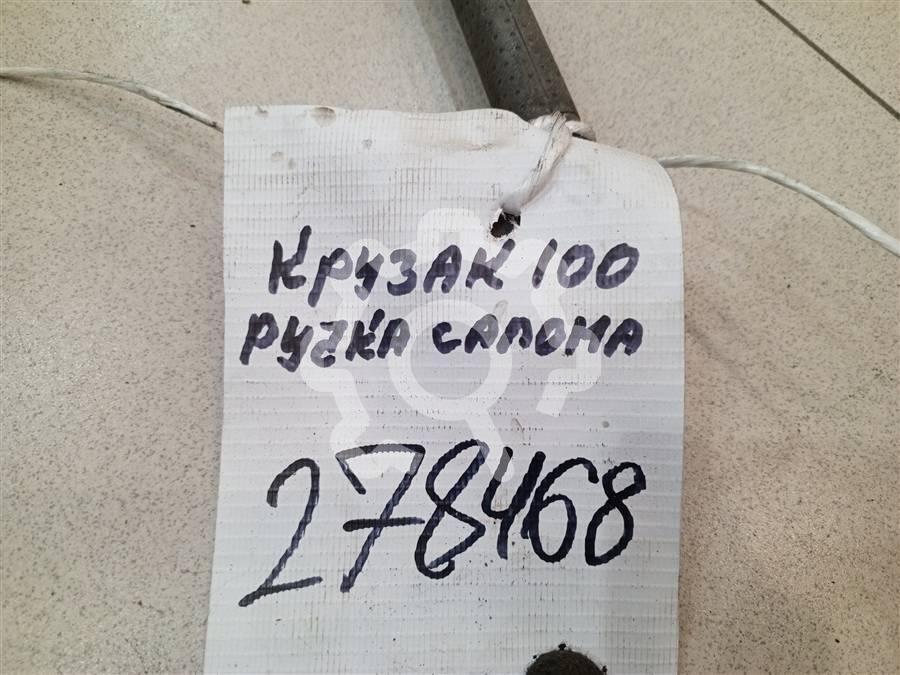 КРУЗАК 100
РУЧКА САЛОНА
278468